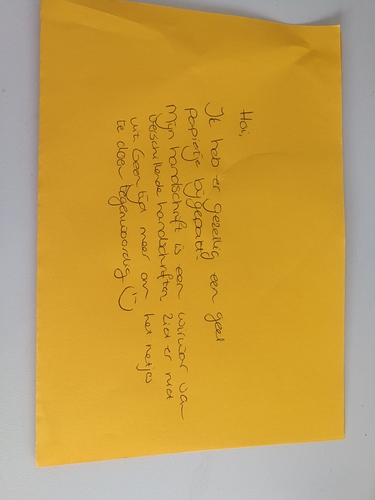 Hoi,
Ik heb er gezellig een geel
papiertje bijgepakt.
Mijn handschrift is een wirwar van
verschillende handschriften ziet er niet
uit. Geen tijd meer om het netjes
te doen tegenwoordig :)